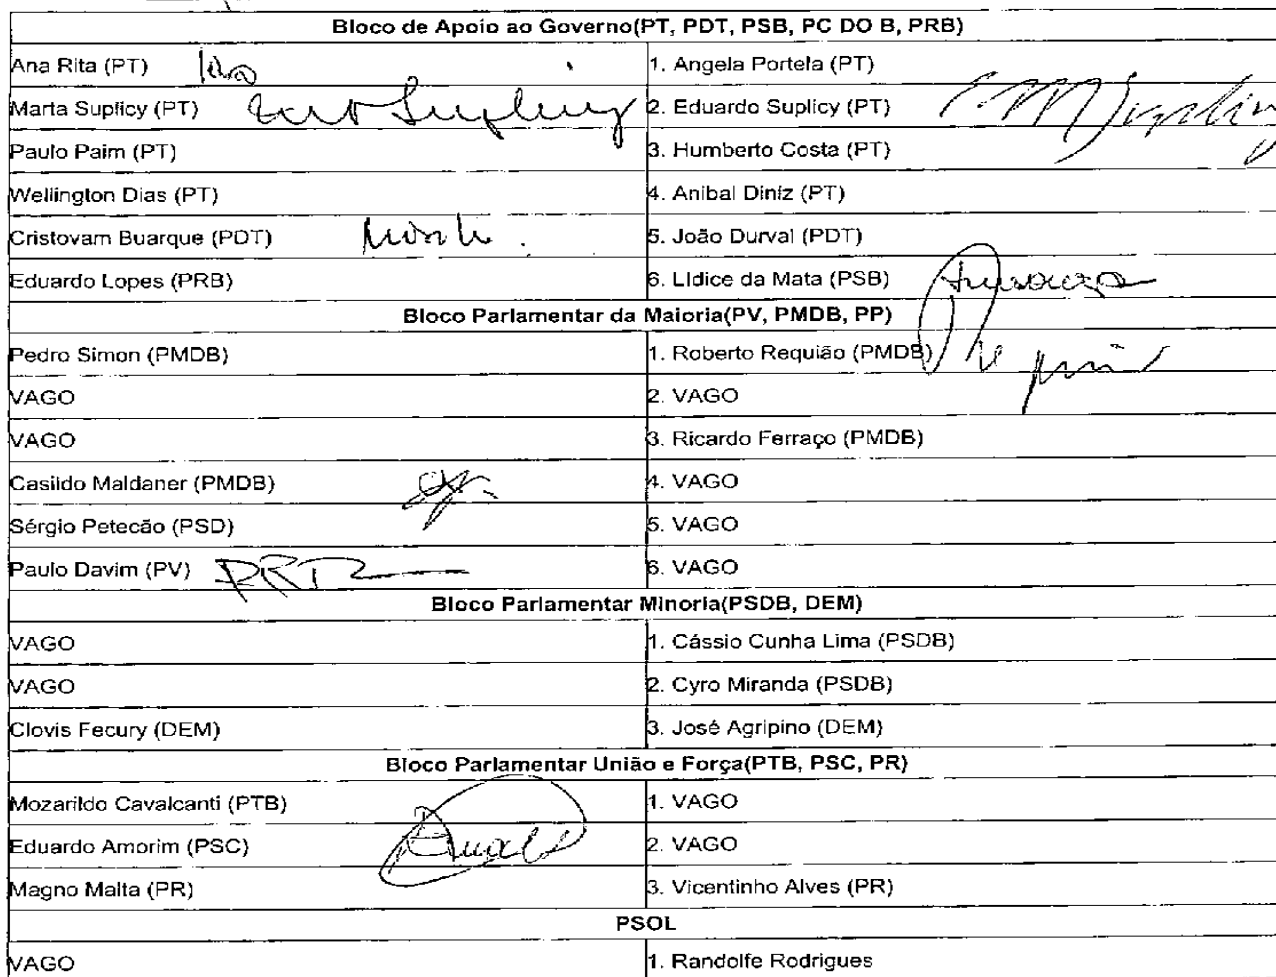 Bloco de Apoio ao Governo(PT, PDT, PSB, PC DO B, PRB)
Ana Rita (PT) 1. Angela Portela (PT)
Marta Suplicy (PT) Suplicy 2. Eduardo Suplicy (PT) Suplicy
Paulo Paim (PT) 3. Humberto Costa (PT)
Wellington Dias (PT) 4. Anibal Diniz (PT)
Cristovam Buarque (PDT) 5. João Durval (PDT)
Eduardo Lopes (PRB) 6. Lídice da Mata (PSB)
Bloco Parlamentar da Maioria(PV, PMDB, PP)
Pedro Simon (PMDB) 1. Roberto Requião (PMDB)
VAGO 2. VAGO
VAGO 3. Ricardo Ferraço (PMDB)
Casildo Maldaner (PMDB) 4. VAGO
Sérgio Petecão (PSD) 5. VAGO
Paulo Davim (PV) 6. VAGO
Bloco Parlamentar Minoria(PSDB, DEM)
VAGO 1. Cássio Cunha Lima (PSDB)
VAGO 2. Cyro Miranda (PSDB)
Clovis Fecury (DEM) 3. José Agripino (DEM)
Bloco Parlamentar União e Força(PTB, PSC, PR)
Mozarildo Cavalcanti (PTB) 1. VAGO
Eduardo Amorim (PSC) 2. VAGO
Magno Malta (PR) 3. Vicentinho Alves (PR)
PSOL
VAGO 1. Randolfe Rodrigues